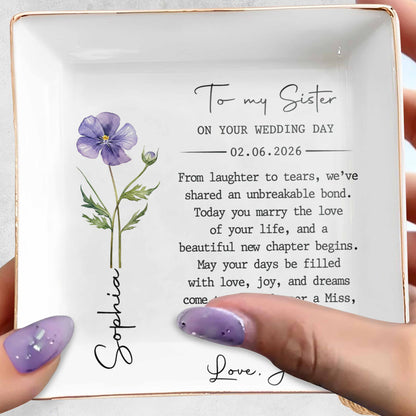 To my Sister
ON YOUR WEDDING DAY
02.06.2026
From laughter to tears, we've
shared an unbreakable bond.
Today you marry the love
of your life, and a
beautiful new chapter begins.
May your days be filled
with love, joy, and dreams
come a Miss,
Love,
Sophia